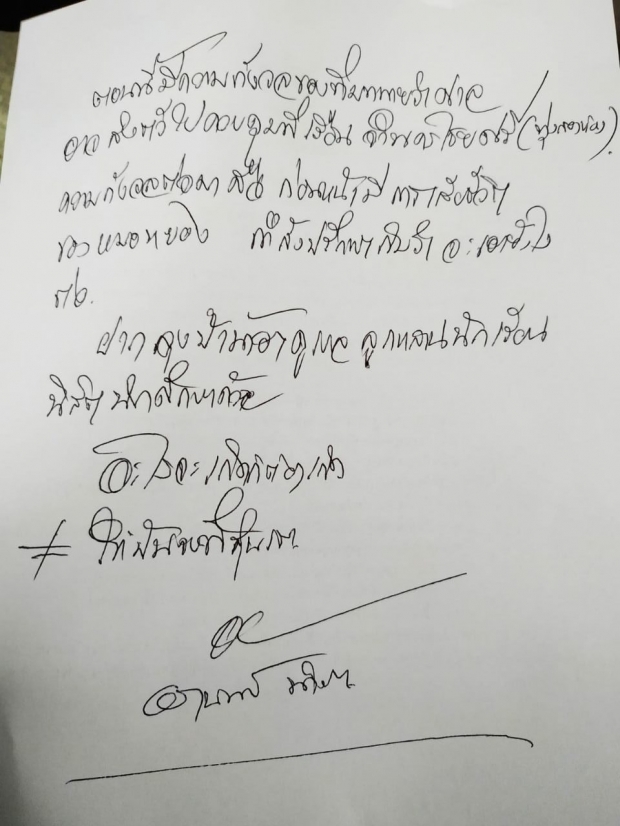 ตอนนี้มีความกังวลของทีมทนายว่าศาล
อาจส่งตัวไปควบคุมที่เรือนจำ
ความกังวลต่อมา คือ ก่อนหน้ามีการเสียชีวิต
ของหมอหยอง กำลังปรึกษากันว่า จะเอายังไง
ต่อ.
ฝากลุงป้าน้าอาดูแล ลูกหลานนักเรียน
นิสิต นักศึกษาด้วย
อะไรจะเกิดก็ต้องเกิด
ให้มันจบที่รุ่นเรา
อานนท์ นำภา